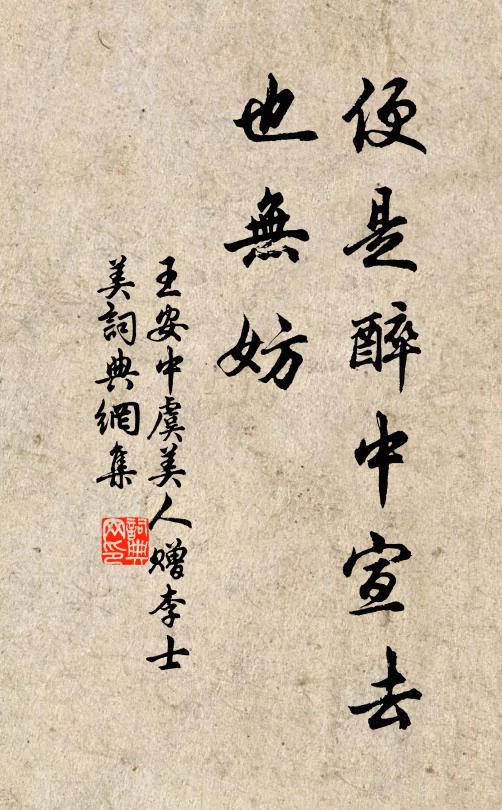 便是醉中宣去
也無妨
王安中虞美人赠李士
美詞典網集
詞典
网印